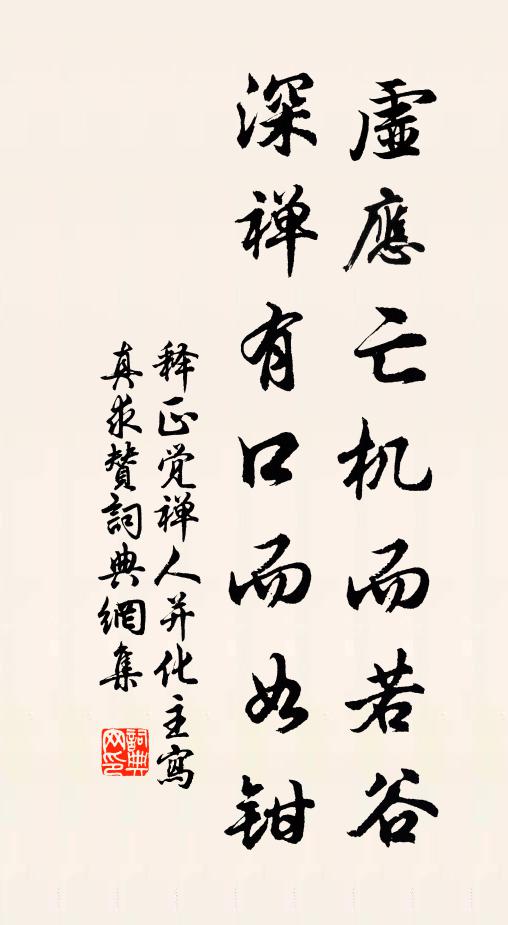 虛應亡机而若谷
深禅有口而如钳
释正觉禅人并化主寫
真求賛詞典網集
詞典网印